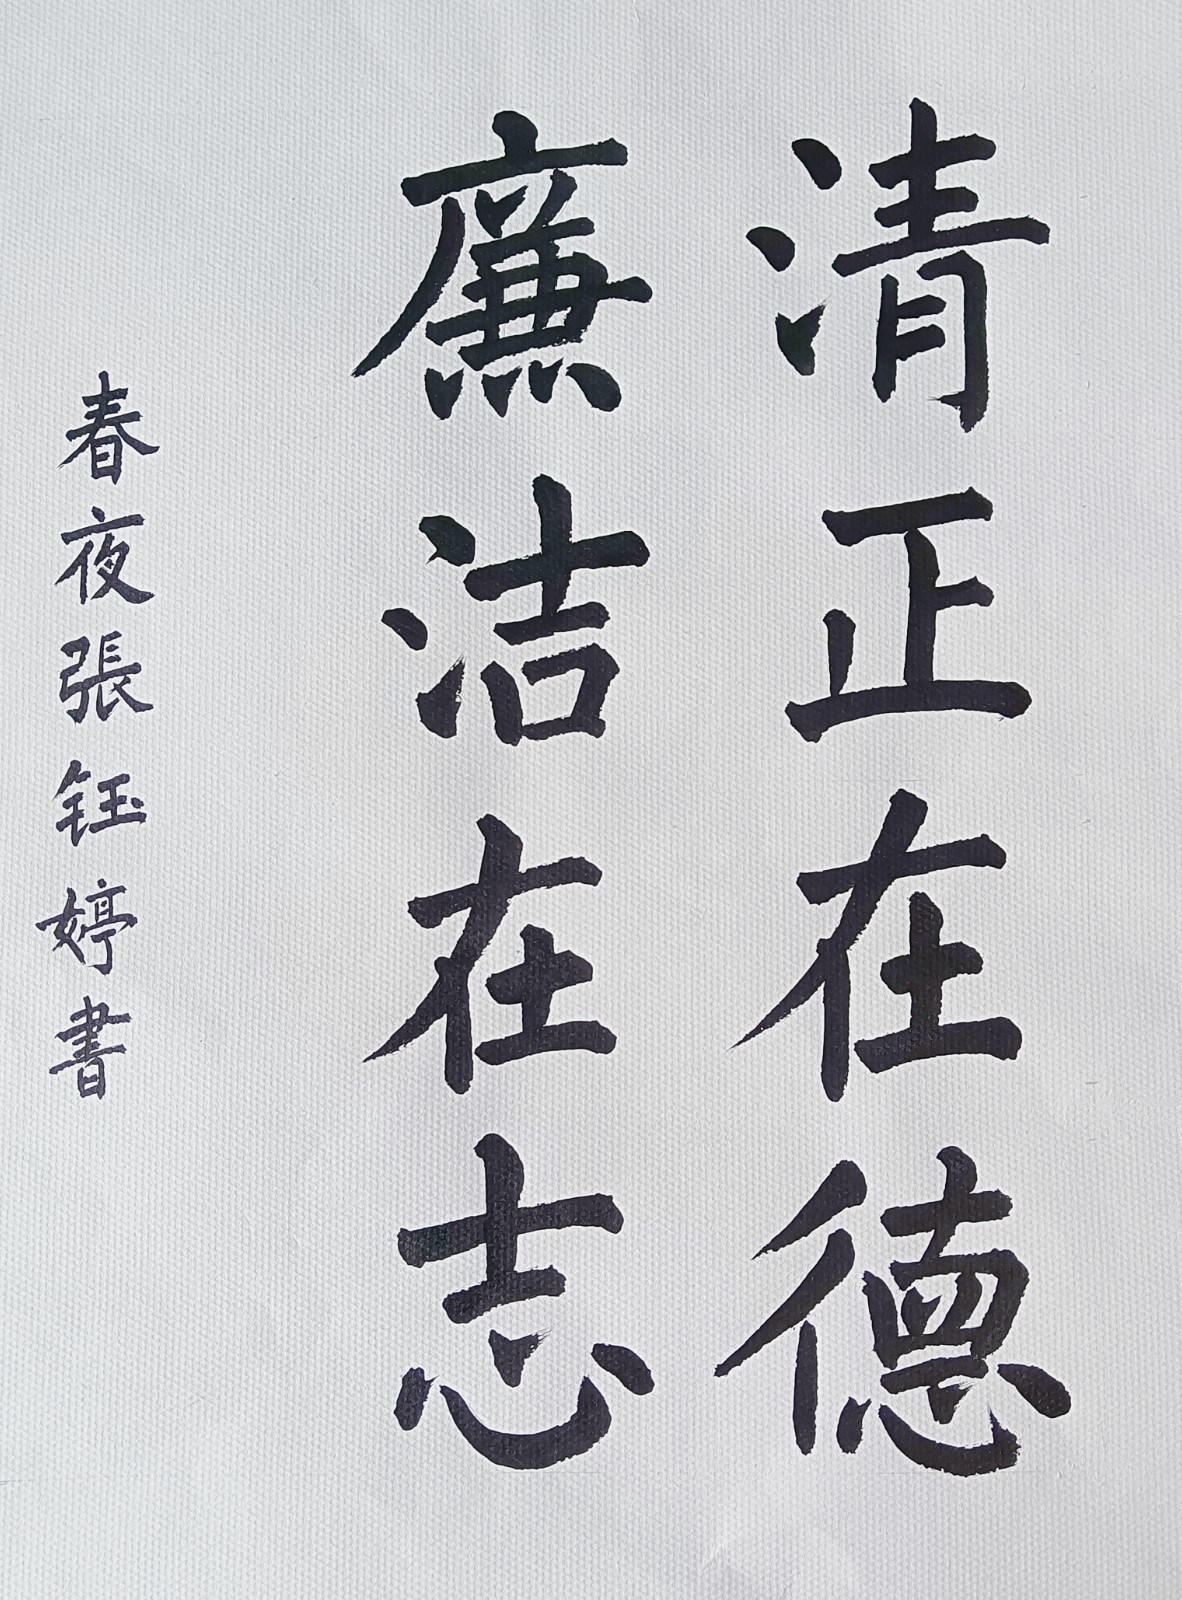 清正在德
廉洁在志
春夜張钰婷書